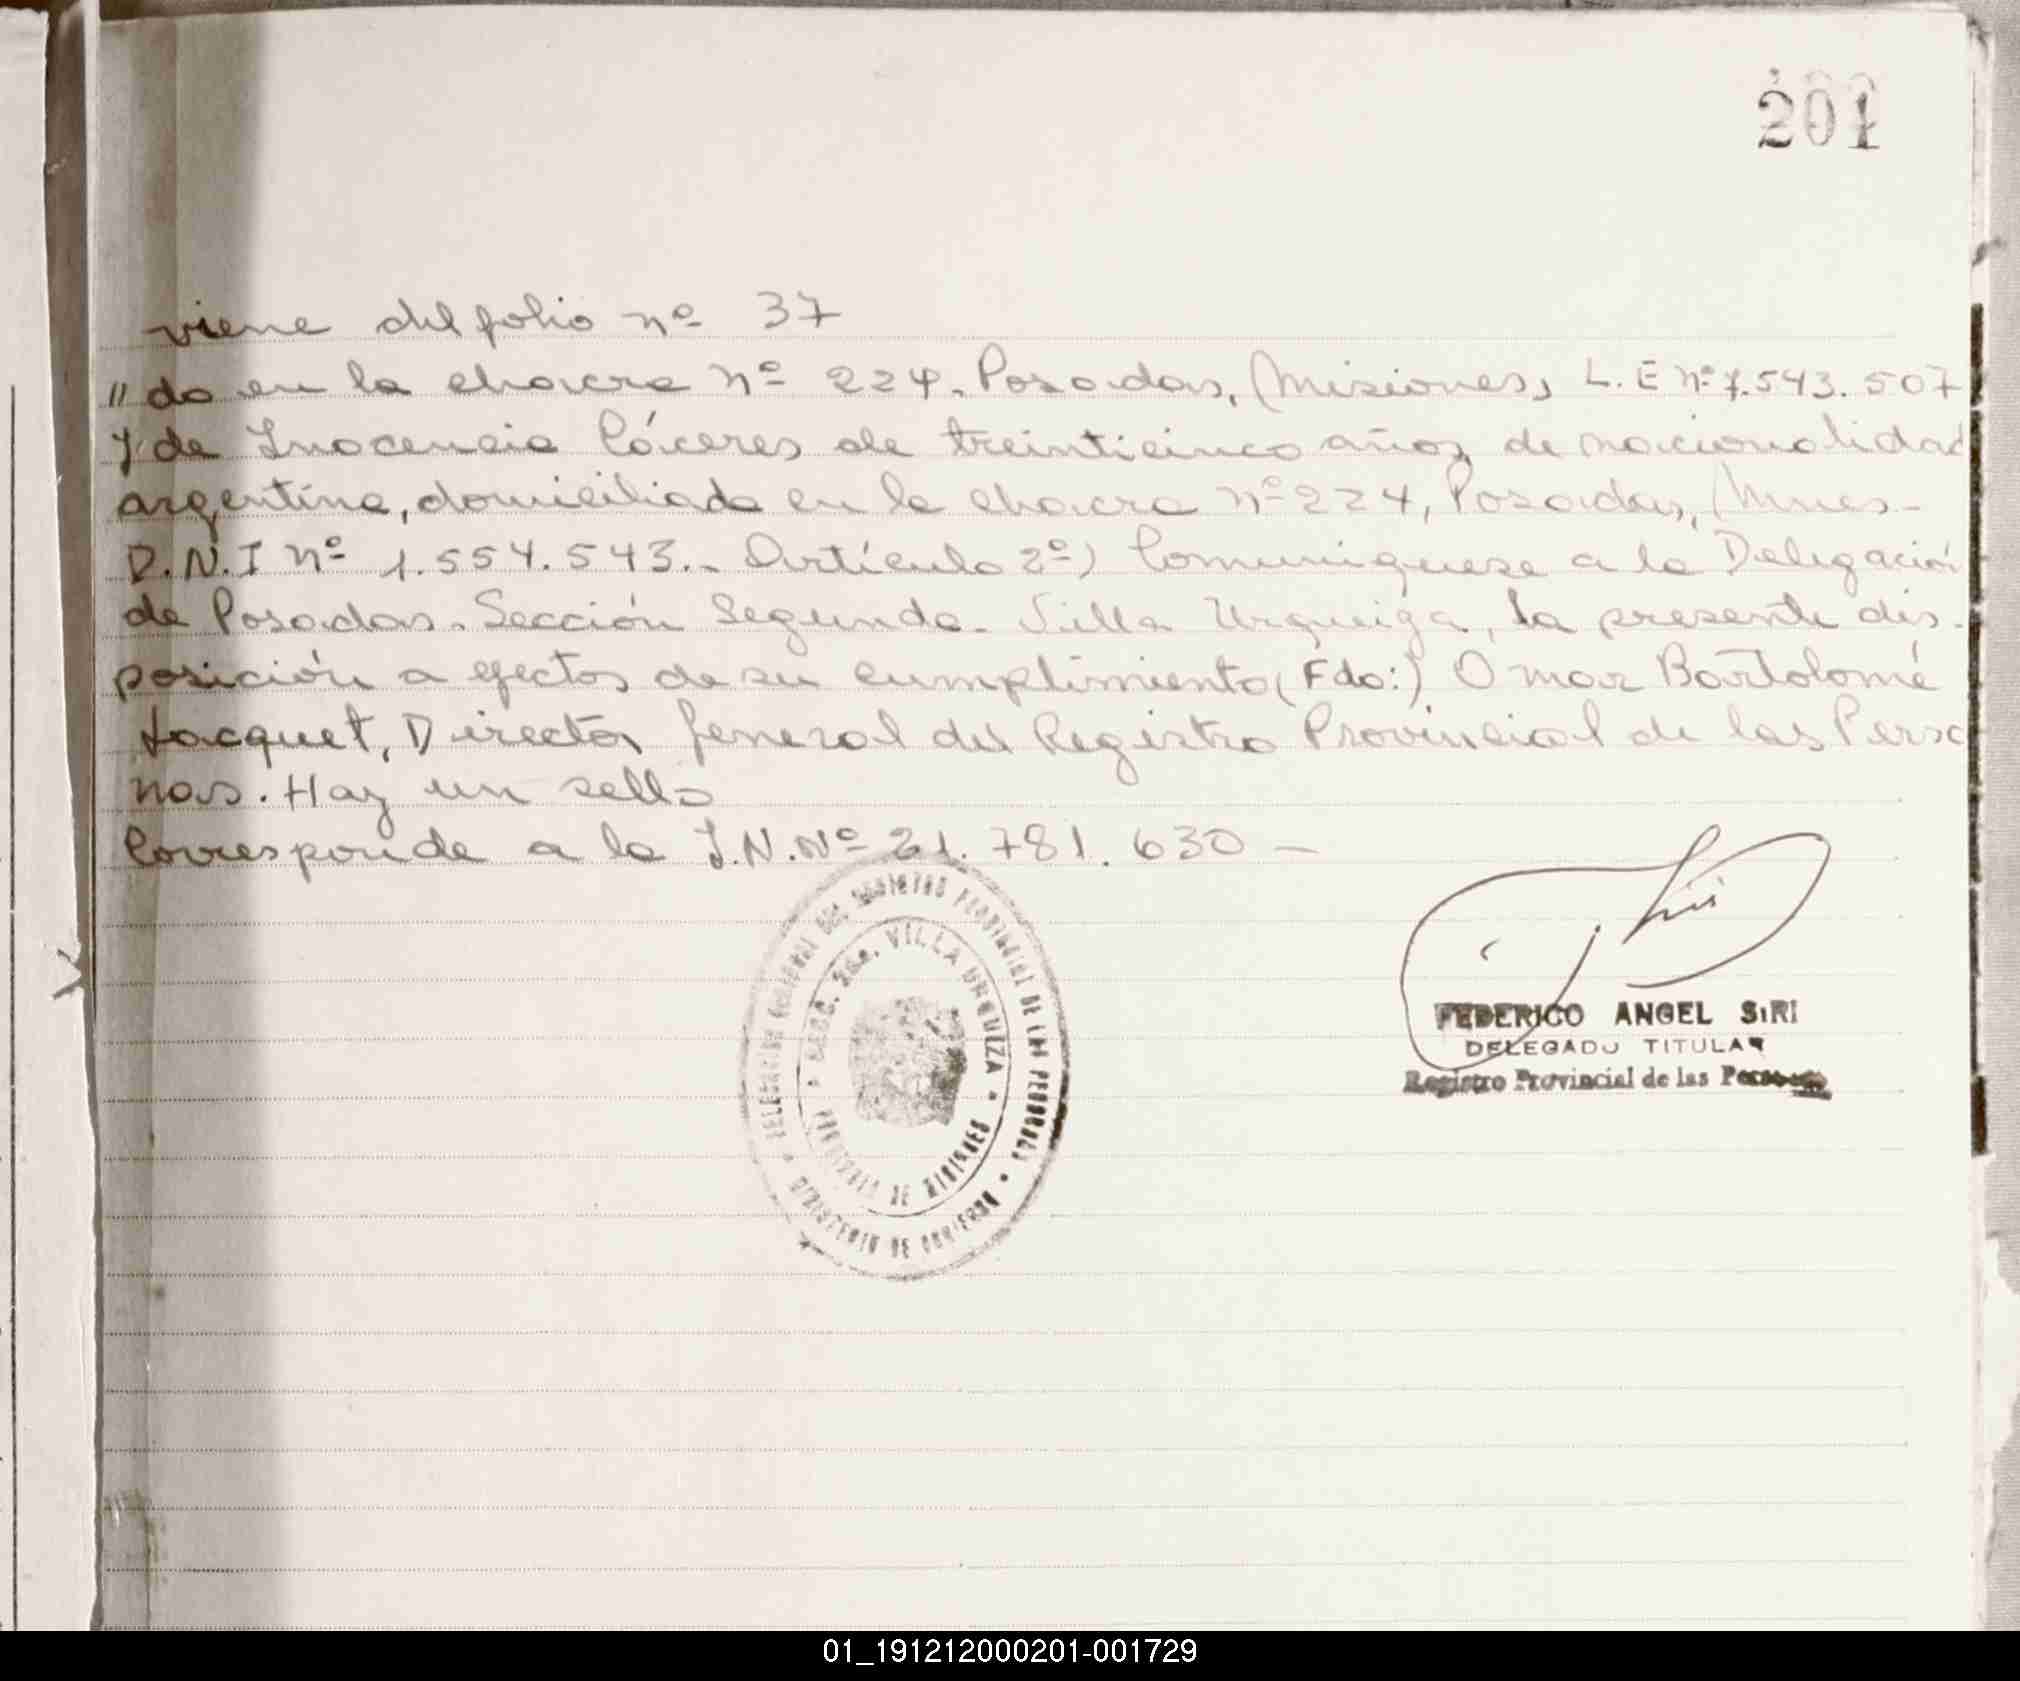 201
viene del folio nº 37
"do en la chacra nº 224. Posadas, Misiones, L.E nº 7.543.507
y de Inocencia Cáceres de treinticinco años, de nacionalidad
argentina, domiciliada en la chacra nº 224, Posadas, Mnes-
D.N.I nº 1.554.543.- Artículo 2º) Comuníquese a la Delegación
de Posadas. Sección Segunda. Villa Urquiza, la presente dis-
posición a efectos de su cumplimiento (Fdo:) Omar Bartolomé
Jacquet, Director General del Registro Provincial de las Perso
nas. Hay un sello
Corresponde a la I.N.Nº 21.781.630 -
DELEGACION DEL REGISTRO PROVINCIAL DE LAS PERSONAS
SECC. 2da. VILLA URQUIZA
PROVINCIA DE MISIONES
MINISTERIO DE GOBIERNO
Siri
FEDERICO ANGEL SIRI
DELEGADO TITULAR
Registro Provincial de las Personas
01_191212000201-001729